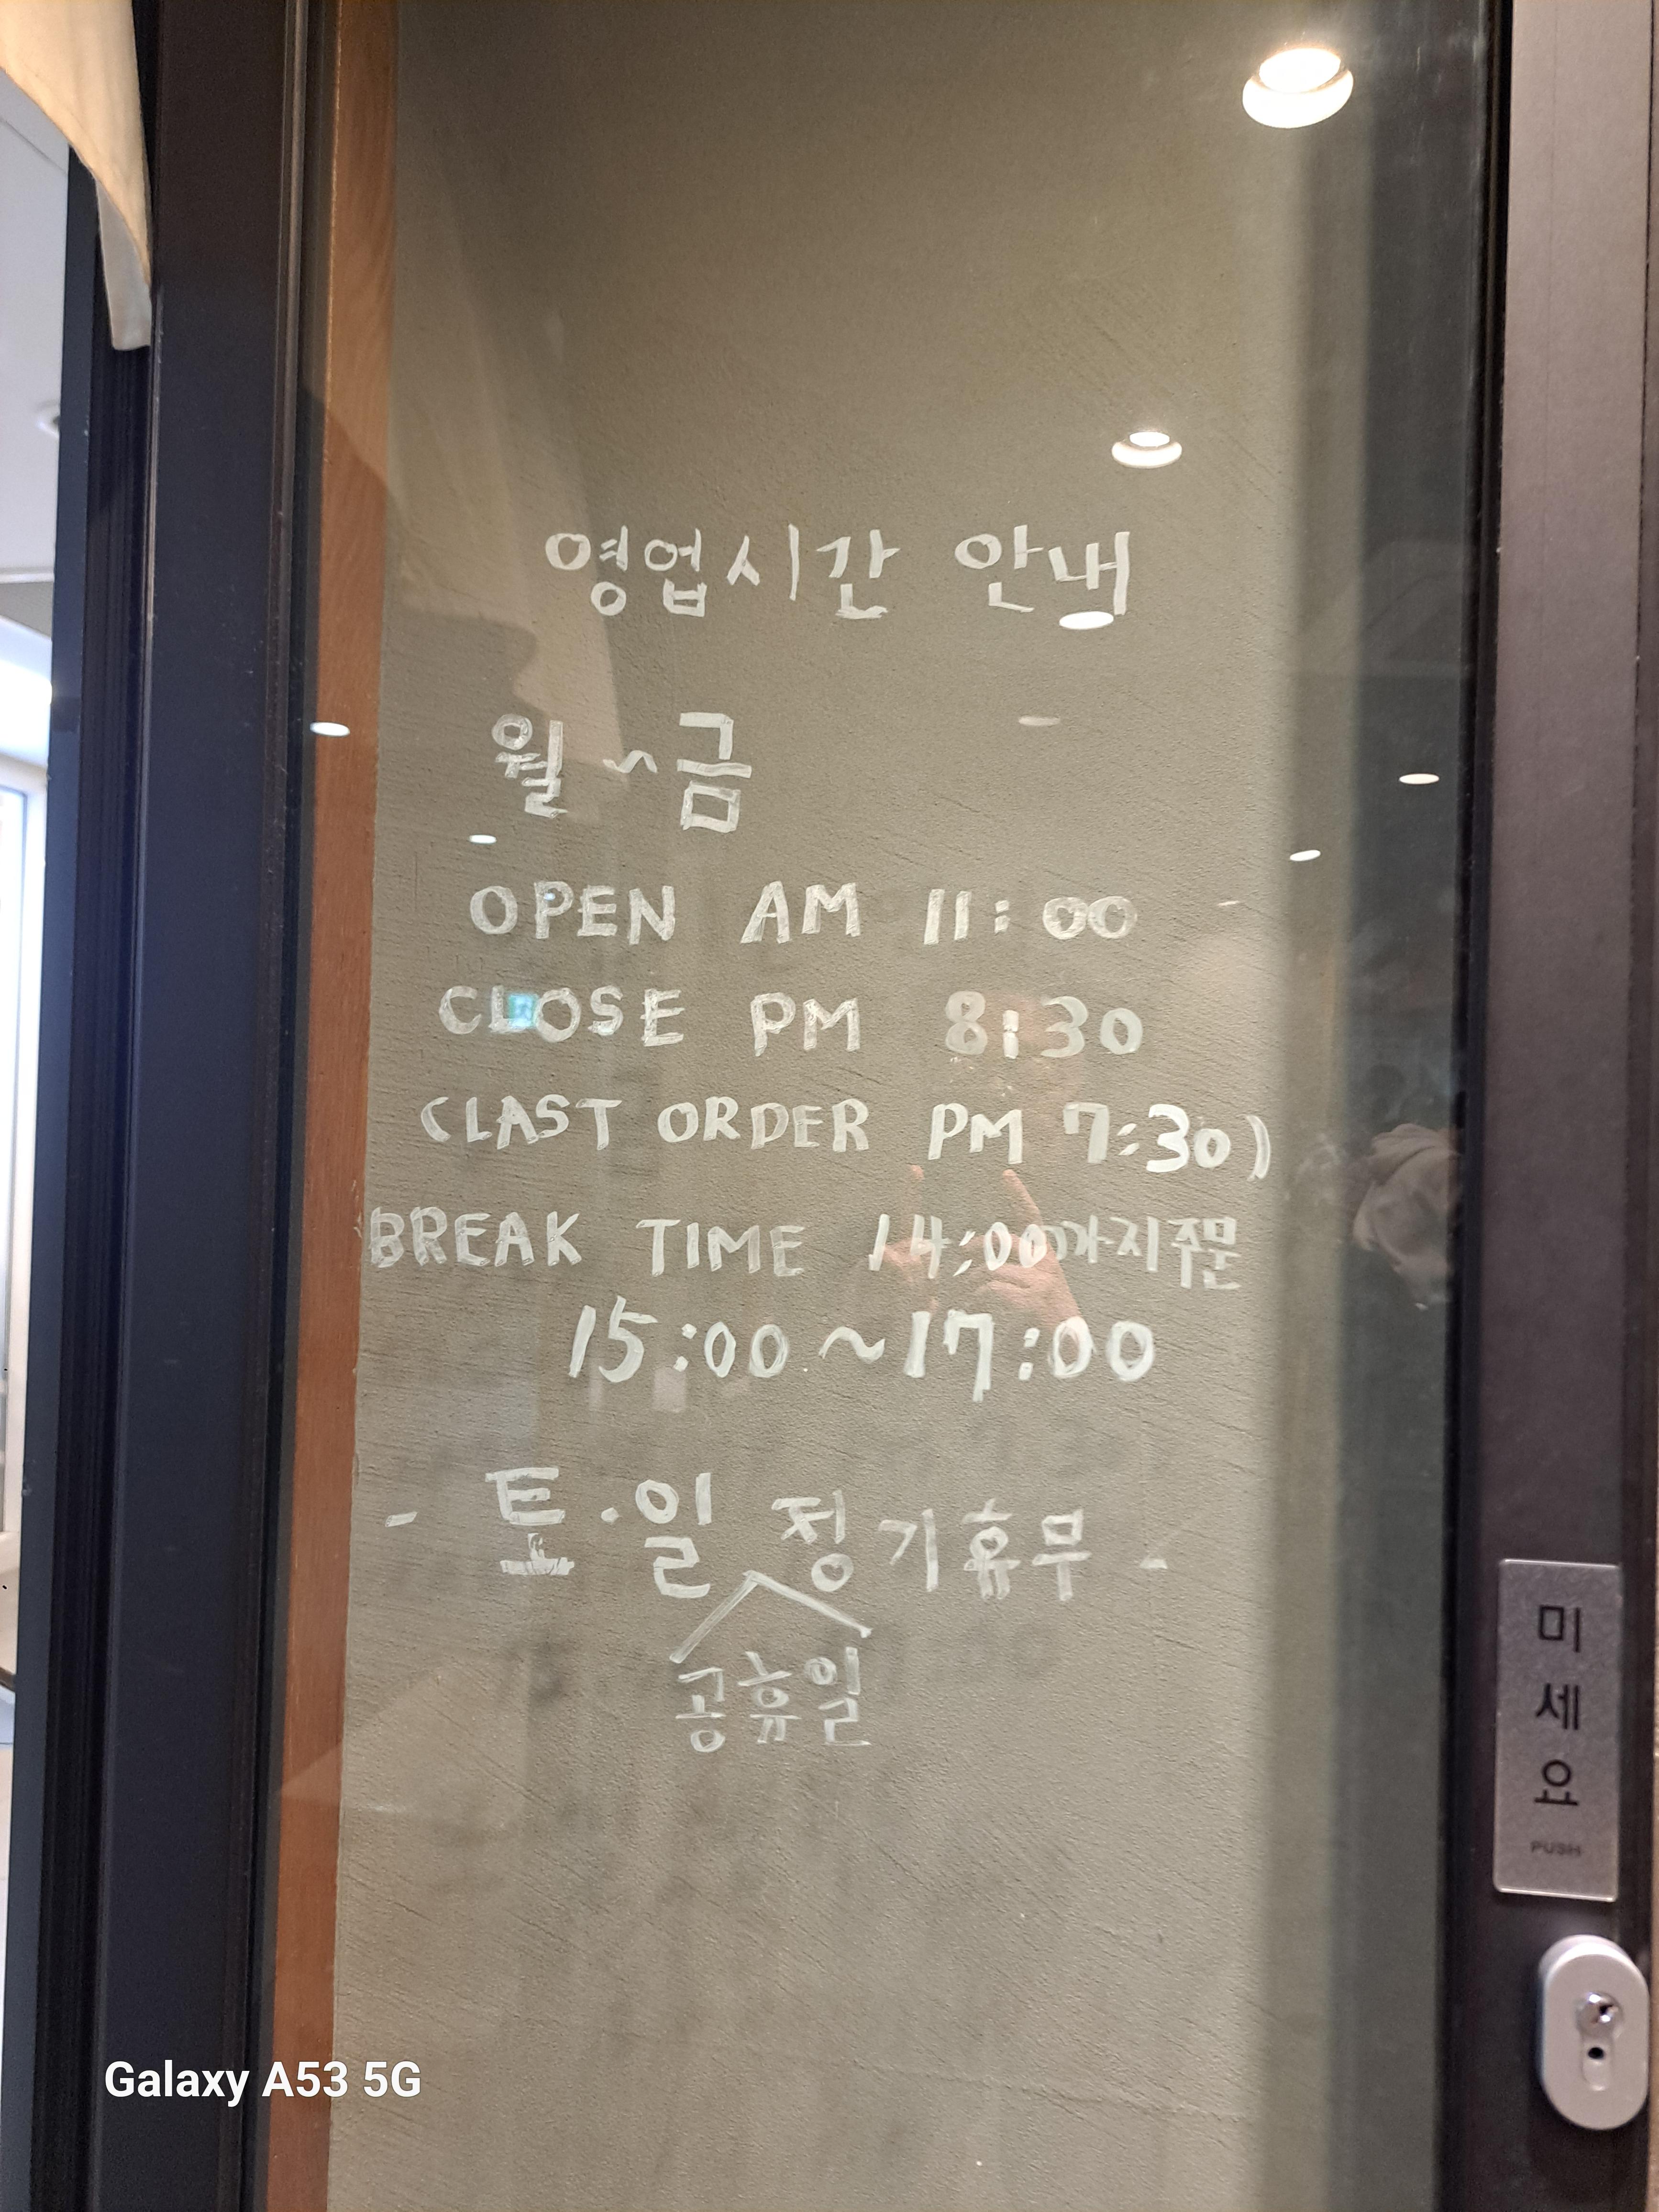 영업시간 안내
월~금
OPEN AM 11:00
CLOSE PM 8:30
(LAST ORDER PM 7:30)
BREAK TIME 14:00까지주문
15:00~17:00
- 토·일 정기휴무 -
공휴일
미세요
PUSH
Galaxy A53 5G